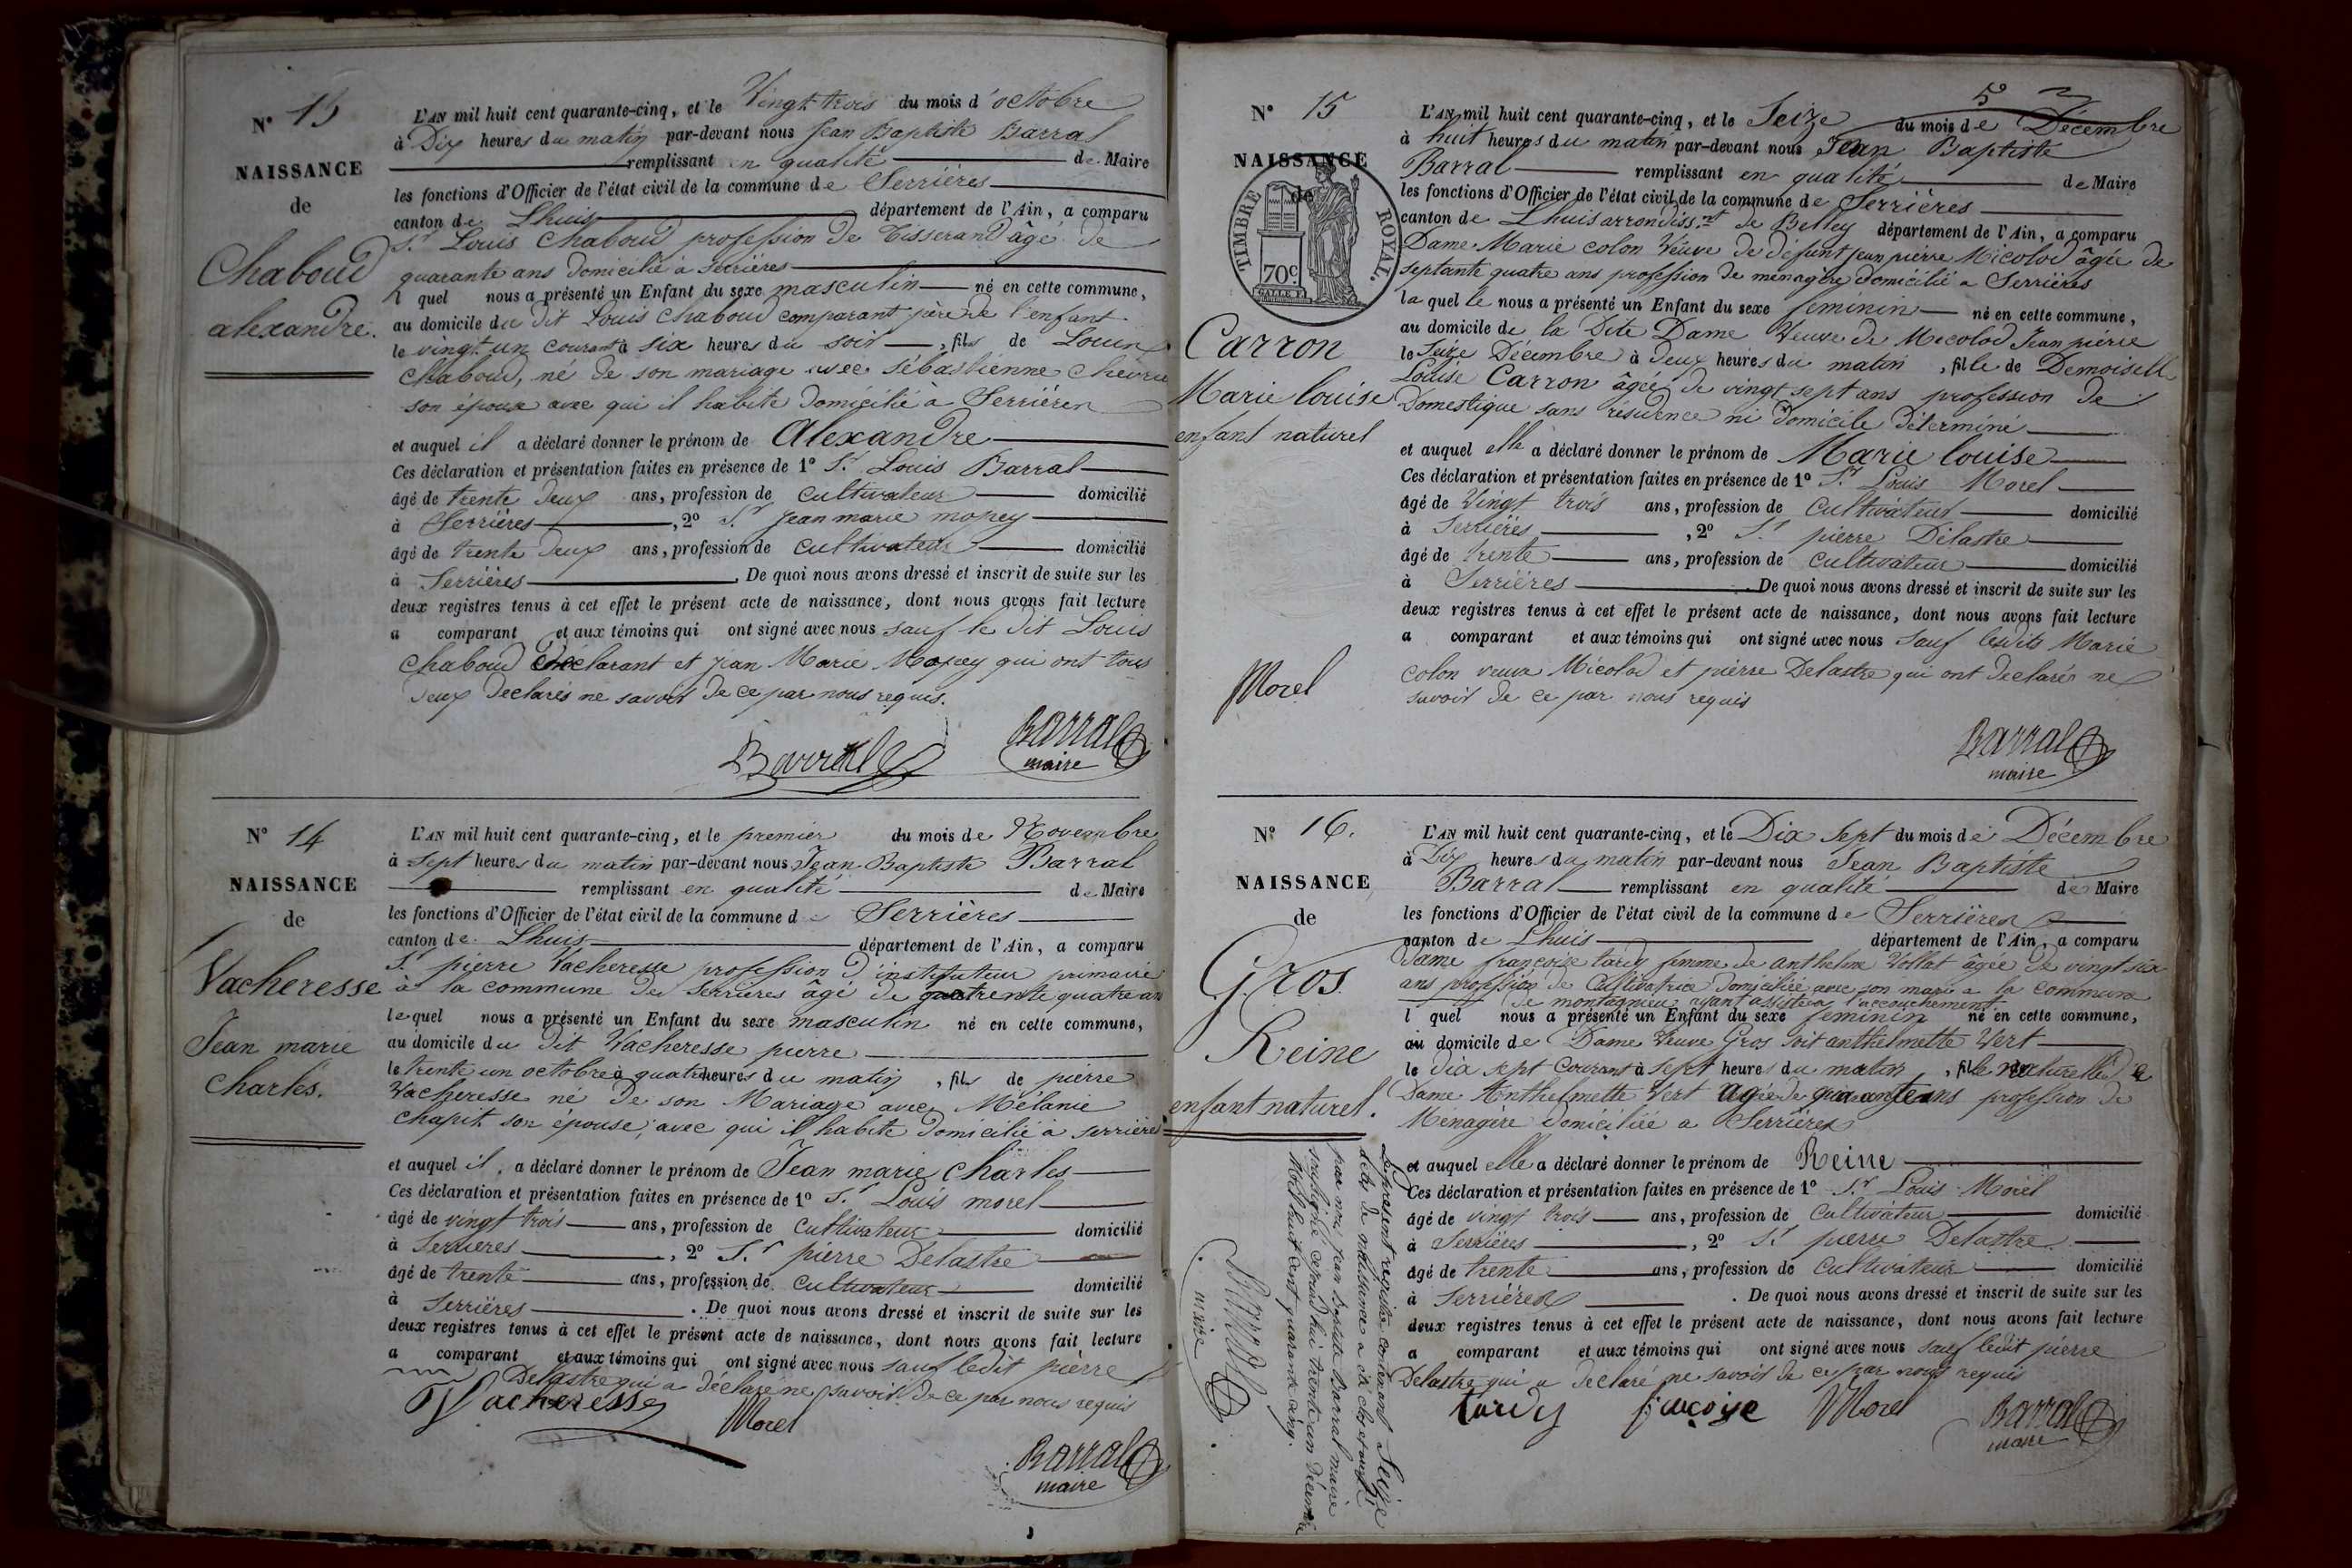 N° 13
NAISSANCE
de
Chaboud
alexandre.
L'AN mil huit cent quarante-cinq, et le Vingt trois du mois d'octobre
à Dix heures du matin par-devant nous Jean Baptiste Barral
remplissant en qualité de Maire
les fonctions d'Officier de l'état civil de la commune de Serrières
canton de Lhuis département de l'Ain, a comparu
Sr Louis Chaboud profession de Tisserand âgé de
quarante ans domicilié à Serrières
l quel nous a présenté un Enfant du sexe masculin né en cette commune,
au domicile du dit Louis Chaboud comparant père de l'enfant
le vingt un courant à six heures du soir, fils de Louis
Chaboud, né de son mariage avec Sébastienne
son épouse avec qui il habite domicilié à Serrières
et auquel il a déclaré donner le prénom de Alexandre
Ces déclaration et présentation faites en présence de 1° Sr Louis Barral
âgé de trente deux ans, profession de cultivateur domicilié
à Serrières, 2° Sr Jean marie mopey
âgé de trente deux ans, profession de cultivateur domicilié
à Serrières. De quoi nous avons dressé et inscrit de suite sur les
deux registres tenus à cet effet le présent acte de naissance, dont nous avons fait lecture
a comparant et aux témoins qui ont signé avec nous sauf le dit Louis
Chaboud déclarant et Jean Marie Mopey qui ont tous
deux declarés ne savoir de ce par nous requis.
Barral
Barral
maire
N° 14
NAISSANCE
de
Vacheresse
Jean marie
charles.
L'AN mil huit cent quarante-cinq, et le premier du mois de Novembre
à sept heures du matin par-devant nous Jean-Baptiste Barral
remplissant en qualité de Maire
les fonctions d'Officier de l'état civil de la commune de Serrières
canton de Lhuis département de l'Ain, a comparu
Sr pierre Vacheresse profession d'instituteur primaire
à la commune de Serrières âgé de trente quatre ans
lequel nous a présenté un Enfant du sexe masculin né en cette commune,
au domicile du dit Vacheresse pierre
le trente un octobre à quatre heures du matin, fils de pierre
Vacheresse né de son Mariage avec Mélanie
chapit son épouse, avec qui il habite domicilié à serrières
et auquel il a déclaré donner le prénom de Jean marie charles
Ces déclaration et présentation faites en présence de 1° Sr Louis morel
âgé de vingt trois ans, profession de cultivateur domicilié
à Serrieres, 2° Sr pierre Delastre
âgé de trente ans, profession de cultivateur domicilié
à Serrières. De quoi nous avons dressé et inscrit de suite sur les
deux registres tenus à cet effet le présent acte de naissance, dont nous avons fait lecture
a comparant et aux témoins qui ont signé avec nous sauf ledit pierre
Delastre qui a déclaré ne savoir de ce par nous requis
Vacheresse Morel
Barral
maire
5
N° 15
NAISSANCE
de
TIMBRE ROYAL.
70c.
Carron
Marie louise
enfant naturel
L'AN mil huit cent quarante-cinq, et le Seize du mois de Décembre
à huit heures du matin par-devant nous Jean Baptiste
Barral remplissant en qualité de Maire
les fonctions d'Officier de l'état civil de la commune de Serrières
canton de Lhuis arrondiss.nt de Belley département de l'Ain, a comparu
Dame Marie colon Veuve de défunt jean pierre Micolod âgée de
septante quatre ans profession de ménagère domicilié a Serrières
laquelle nous a présenté un Enfant du sexe feminin né en cette commune,
au domicile de la dite Dame Veuve de Mecolod Jean pierre
le Seize Décembre à deux heures du matin, fille de Demoiselle
Louise Carron âgée de vingt sept ans profession de
Domestique sans résidence ni domicile déterminé
et auquel elle a déclaré donner le prénom de Marie louise
Ces déclaration et présentation faites en présence de 1° Sr Louis Morel
âgé de Vingt trois ans, profession de cultivateur domicilié
à Serrières, 2° Sr pierre Delastre
âgé de trente ans, profession de cultivateur domicilié
à Serrières. De quoi nous avons dressé et inscrit de suite sur les
deux registres tenus à cet effet le présent acte de naissance, dont nous avons fait lecture
a comparant et aux témoins qui ont signé avec nous sauf lesdits Marie
colon veuve Micolod et pierre Delastre qui ont declarés ne
savoir de ce par nous requis
Morel
Barral
maire
N° 16.
NAISSANCE
de
Gros
Reine
enfant naturel.
L'AN mil huit cent quarante-cinq, et le Dix Sept du mois de Décembre
à Dix heures du matin par-devant nous Jean Baptiste
Barral remplissant en qualité de Maire
les fonctions d'Officier de l'état civil de la commune de Serrières
canton de Lhuis département de l'Ain, a comparu
Dame françoise tardy femme de anthelme Vollat âgée de vingt six
ans profession de Cultivatrice domiciliée avec son mari a la commune
de montagnieu ayant assistée a l'accouchement
l quel nous a présenté un Enfant du sexe feminin né en cette commune,
au domicile de Dame Veuve Gros soit anthelmette Vert
le dix sept courant à sept heures du matin, fille naturelle de
Dame Anthelmette Vert agée de quarante ans profession de
Ménagère domiciliée a Serrières
et auquel elle a déclaré donner le prénom de Reine
Ces déclaration et présentation faites en présence de 1° Sr Louis Morel
âgé de vingt trois ans, profession de cultivateur domicilié
à Serrières, 2° Sr pierre Delastre
âgé de trente ans, profession de cultivateur domicilié
à Serrières. De quoi nous avons dressé et inscrit de suite sur les
deux registres tenus à cet effet le présent acte de naissance, dont nous avons fait lecture
a comparant et aux témoins qui ont signé avec nous sauf ledit pierre
Delastre qui a declaré ne savoir de ce par nous requis
tardy françoise Morel Barral
maire
Le present registre contenant Seize
actes de naissance a été clos et
par nous jean Baptiste Barral maire
soussigné cejourd'hui trente un Décembre
Mil huit cent quarante cinq.
Barral
maire